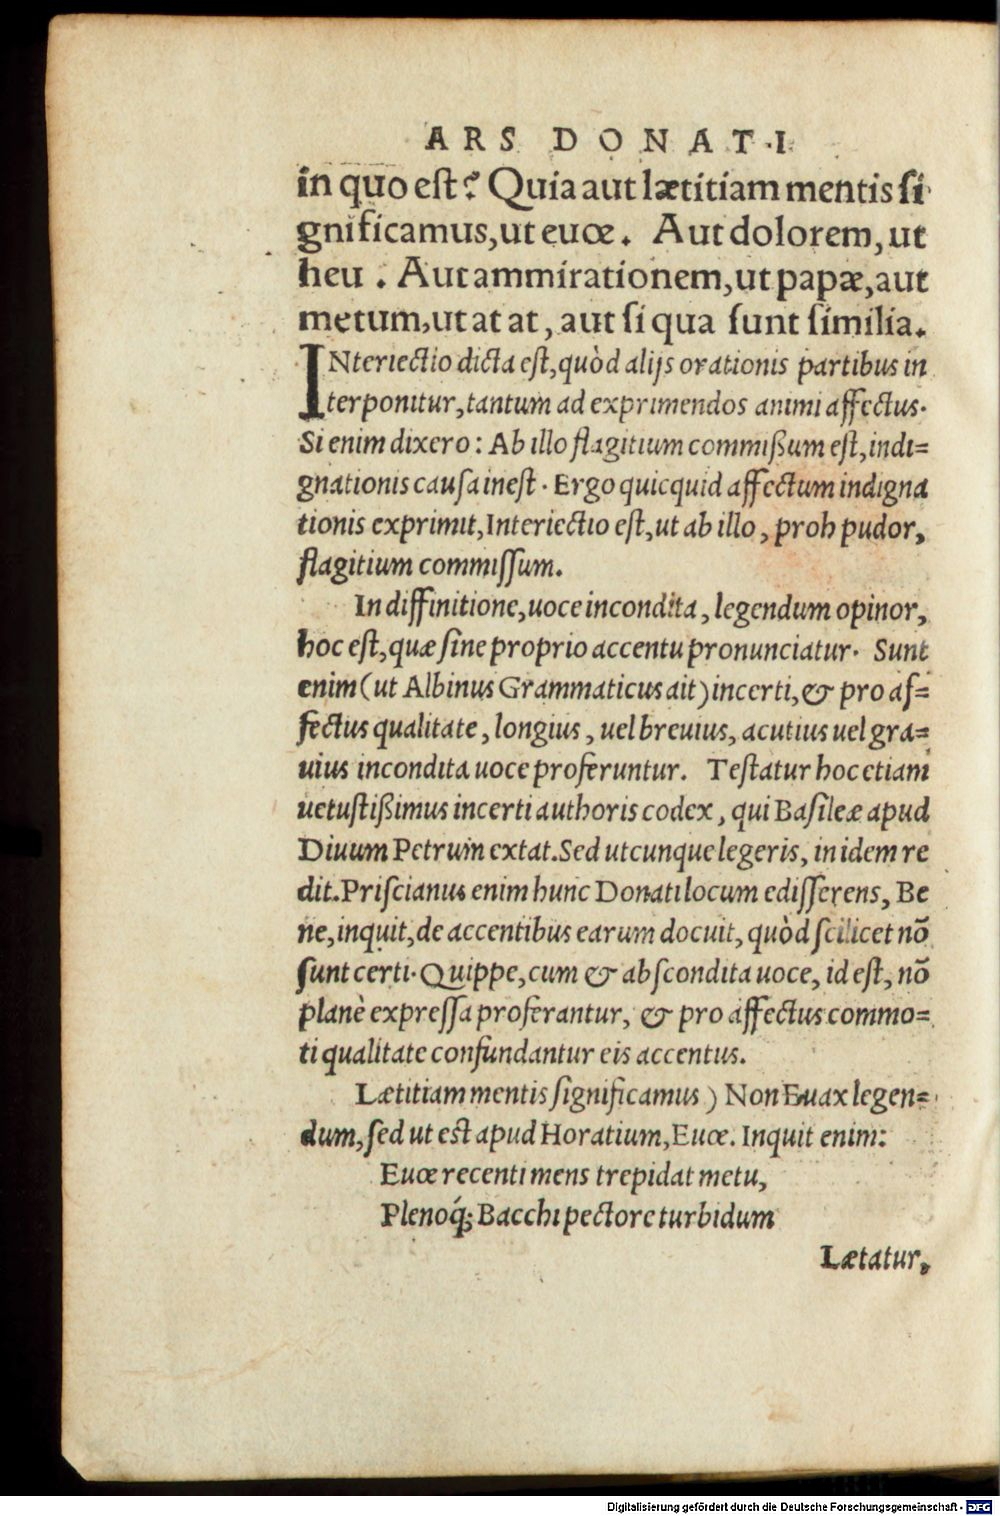 ARS DONATI
in quo est? Quia aut lætitiam mentis si
gnificamus, ut euœ. Aut dolorem, ut
heu. Aut ammirationem, ut papæ, aut
metum, ut at at, aut si qua sunt similia.
INteriectio dicta est, quòd alijs orationis partibus in
terponitur, tantum ad exprimendos animi affectus.
Si enim dixero: Ab illo flagitium commißum est, indi=
gnationis causa inest. Ergo quicquid affectum indigna
tionis exprimit, Interiectio est, ut ab illo, proh pudor,
flagitium commissum.
In diffinitione, uoce incondita, legendum opinor,
hoc est, quæ sine proprio accentu pronunciatur. Sunt
enim (ut Albinus Grammaticus ait) incerti, & pro af=
fectus qualitate, longius, uel breuius, acutius uel gra=
uius incondita uoce proferuntur. Testatur hoc etiam
uetustißimus incerti authoris codex, qui Basileæ apud
Diuum Petrum extat. Sed utcunque legeris, in idem re
dit. Priscianus enim hunc Donati locum edisserens, Be
ne, inquit, de accentibus earum docuit, quòd scilicet nõ
sunt certi. Quippe, cum & abscondita uoce, id est, nõ
planè expressa proferantur, & pro affectus commo=
ti qualitate confundantur eis accentus.
Lætitiam mentis significamus) Non Euax legen=
dum, sed ut est apud Horatium, Euœ. Inquit enim:
Euœ recenti mens trepidat metu,
Plenoq́; Bacchi pectore turbidum
Lætatur,
Digitalisierung gefördert durch die Deutsche Forschungsgemeinschaft - DFG